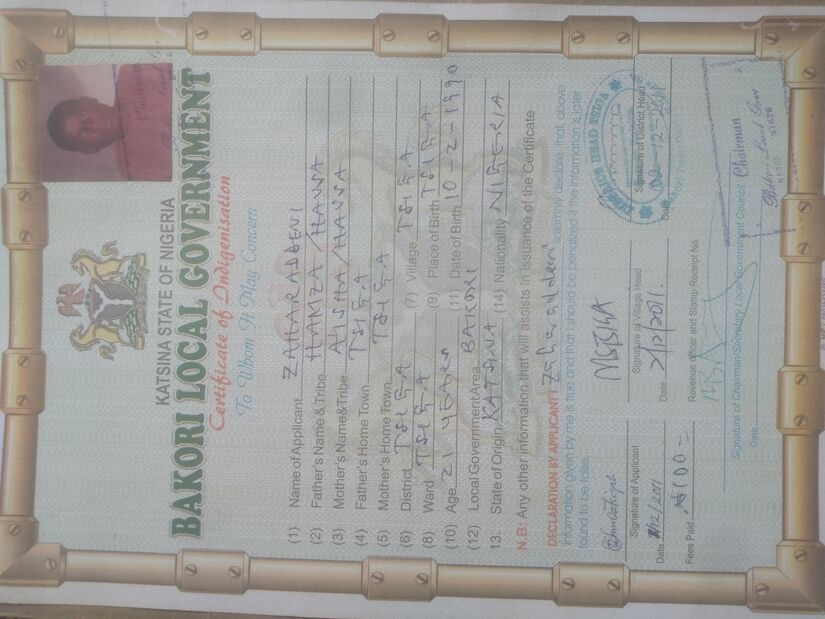 KATSINA STATE OF NIGERIA
BAKORI LOCAL GOVERNMENT
Certificate of Indigenisation
To Whom It May Concern
(1) Name of Applicant ZAHARADDENI
(2) Father's Name & Tribe HAMZA / HAUSA
(3) Mother's Name&Tribe AISHA / HAUSA
(4) Father's Home Town TSIGA
(5) Mother's Home Town TSIGA
(6) District TSIGA (7) Village TSIGA
(8) Ward TSIGA (9) Place of Birth TSIGA
(10) Age 21 YEARS (11) Date of Birth 10-2-1990
(12) Local Government Area BAKORI
13. State of Origin KATSINA (14) Nationality NIGERIA
N.B: Any other information that will assists in issuance of the Certificate
DECLARATION BY APPLICANT I Zaharaddeeni solemnly declare that, above
information given by me is true and that I should be penalized if the information is later
found to be false.
Signature of Applicant Signature of Village Head Signature of District Head
Date 2/12/2011 Date 2/12/2011. Date 02-12-2011
DISTRICT HEAD TSIGA
Fees Paid ₦100= Revenue officer and Stamp Receipt No.
Signature of Chairman/Secretary Local Government Council Chairman
Date
Bakori Local Gov
STATE